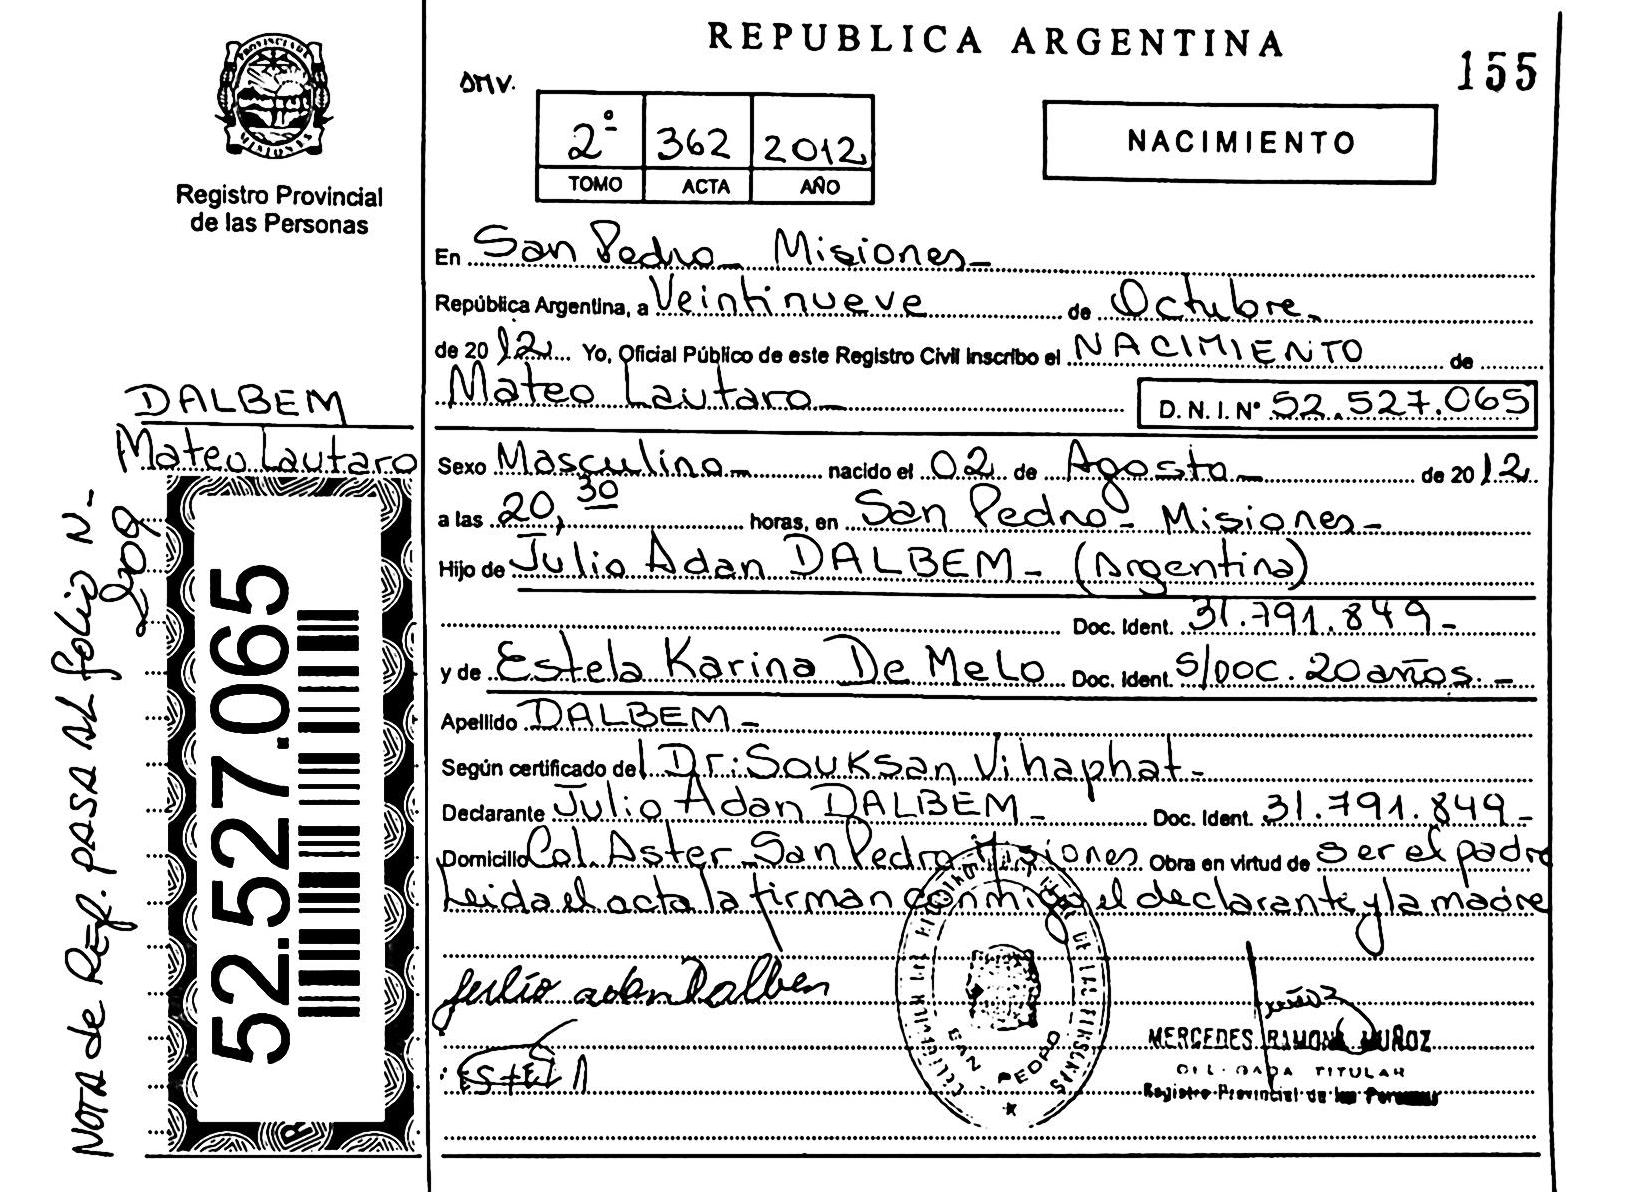 PROVINCIA DE
MISIONES
Registro Provincial
de las Personas
DALBEM
Mateo Lautaro
NOTA de Ref. PASA AL folio N-
209
52.527.065
REPUBLICA ARGENTINA
155
2º 362 2012
TOMO ACTA AÑO
NACIMIENTO
En San Pedro - Misiones -
República Argentina, a Veintinueve de Octubre
de 2012 Yo, Oficial Público de este Registro Civil inscribo el NACIMIENTO de
Mateo Lautaro - D.N.I. Nº 52.527.065
Sexo Masculino - nacido el 02 de Agosto - de 2012
a las 20,30 horas, en San Pedro - Misiones -
Hijo de Julio Adan DALBEM - (Argentina)
Doc. Ident. 31.791.849 -
y de Estela Karina De Melo Doc. Ident. S/DOC. 20 años. -
Apellido DALBEM -
Según certificado del Dr: Souksan Vihaphat -
Declarante Julio Adan DALBEM - Doc. Ident. 31.791.849 -
Domicilio Col. Aster - San Pedro Misiones Obra en virtud de Ser el padre
Leida el acta la firman conmigo el declarante y la madre
Julio adan Dalben
EStELA
SAN PEDRO
MERCEDES RAMONA MUÑOZ
DELEGADA TITULAR
Registro Provincial de las Personas